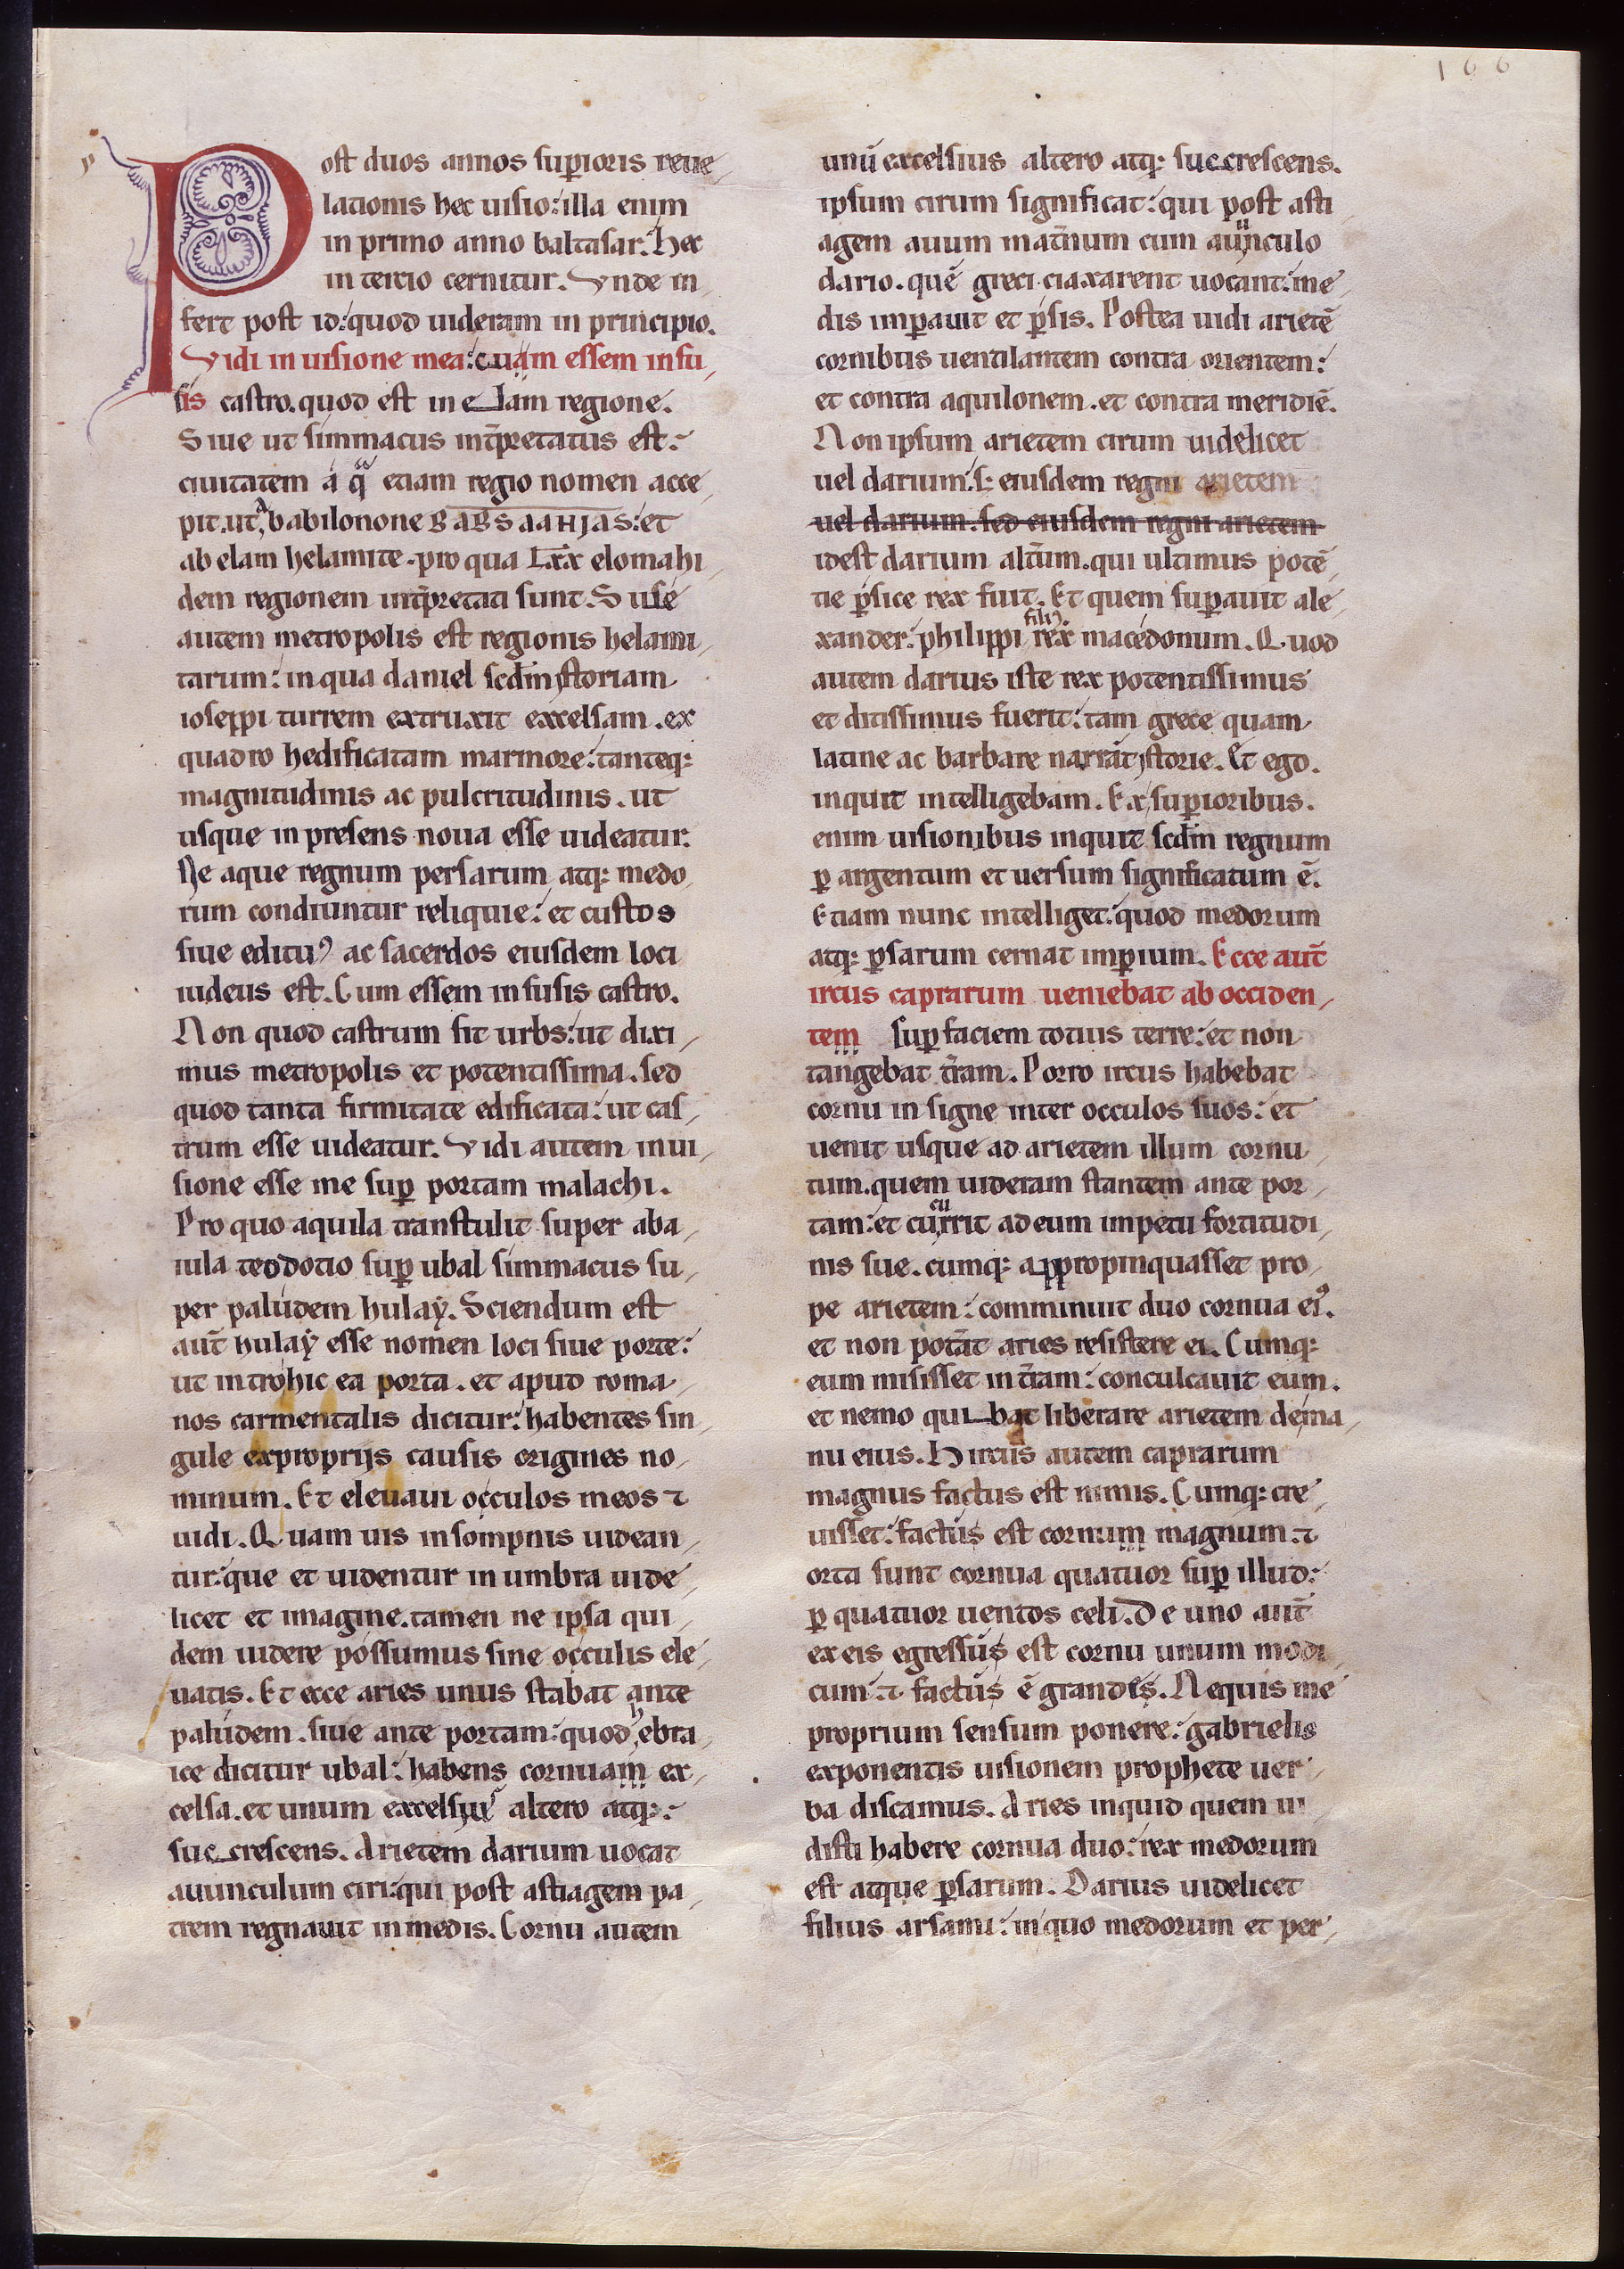 166
Post duos annos sup̄ioris reue
lationis hec uisio: illa enim
in primo anno baltasar. Hec
in tercio cernitur. Vnde in
fert post id: quod uideram in principio.
Vidi in uisione mea: cum essem in su
sis castro. quod est in elam regione.
Siue ut simmacus int̄pretatus est:
ciuitatem a qua etiam regio nomen acce
pit. ut a babilonone BABSAAHIAS: et
ab elam helamite. pro qua Lxx elomahi
dem regionem int̄pretati sunt. Suse
autem metropolis est regionis helami
tarum: in qua daniel scđm ystoriam
ioseppi turrem extruxit excelsam. ex
quadro hedificatam marmore: tanteq:
magnitudinis ac pulcritudinis. ut
usque in presens noua esse uideatur.
Ne aque regnum persarum atq: medo
rum condiuntur reliquie: et custos
siue edituꝰ ac sacerdos eiusdem loci
iudeus est. Cum essem in susis castro.
Non quod castrum sit urbs: ut dixi
mus metropolis et potentissima. sed
quod tanta firmitate edificata: ut cas
trum esse uideatur. Vidi autem in ui
sione esse me suꝑ portam malachi.
Pro quo aquila transtulit super aba
iula teodotio suꝑ ubal simmacus su
per paludem hulaẏ. Sciendum est
aut̄ hulaẏ esse nomen loci siue porte:
ut in trohic ea porta. et apud roma
nos carmentalis dicitur: habentes sin
gule ex proprijs causis origines no
minum. Et eleuaui occulos meos ⁊
uidi. Quam uis in sompnis uidean
tur: que et uidentur in umbra uide
licet et imagine. tamen ne ipsa qui
dem uidere possumus sine occulis ele
uatis. Et ecce aries unus stabat ante
paludem. siue ante portam: quod hebra
ice dicitur ubal: habens cornuam ex
celsa. et unum excelsiꝰ altero atq::
suc crescens. Arietem darium uocat
auunculum ciri: qui post astiagem pa
trem regnauit in medis. Cornu autem
unū excelsius altero atq: suc crescens.
ipsum cirum significat: qui post asti
agem auum mat̄num cum auunculo
dario. quē greci ciaxarent uocant: me
dis imꝑauit et ꝑsis. Postea uidi arietē
cornibus uentilantem contra orientem:
et contra aquilonem. et contra meridiē.
Non ipsum arietem cirum uidelicet
uel darium: s: eiusdem regni arietem
uel darium. sed eiusdem regni arietem
idest darium alt̄um. qui ultimus potē
tie ꝑsice rex fuit. Et quem suꝑauit ale
xander: philippi filiꝰ rex macedonum. Quod
autem darius iste rex potentissimus
et ditissimus fuerit: tam grece quam
latine ac barbare narrāt ystorie. Et ego.
inquit intelligebam. Ex suꝑioribus.
enim uisionibus inquit scđm regnum
ꝑ argentum et uersum significatum ē.
Etiam nunc intelliget: quod medorum
atq: ꝑsarum cernat imꝑium. Ecce aut̄
ircus caprarum ueniebat ab occiden
tem suꝑ faciem totius terre: et non
tangebat t̄ram. Porro ircus habebat
cornu in signe inter occulos suos: et
uenit usque ad arietem illum cornu
tum. quem uideram stantem ante por
tam: et cucurrit ad eum impetu fortitudi
nis sue. cumq: appropinquasset pro
pe arietem: comminuit duo cornua eiꝰ.
et non potāt aries resistere ei. Cumq:
eum misisset in t̄ram: conculcauit eum.
et nemo quibat liberare arietem de ma
nu eius. Hircus autem caprarum
magnus factus est nimis. Cumq: cre
uisset: factus est cornum magnum: ⁊
orta sunt cornua quatuor suꝑ illud:
ꝑ quatuor uentos celi. De uno aut̄
ex eis egressus est cornu unum modi
cum: ⁊ factus ē grandes. Nequis me
proprium sensum ponere: gabrielis
exponentis uisionem prophete uer
ba discamus. Aries inquid quem ui
disti habere cornua duo: rex medorum
est atque ꝑsarum. Darius uidelicet
filius arsami: in quo medorum et per